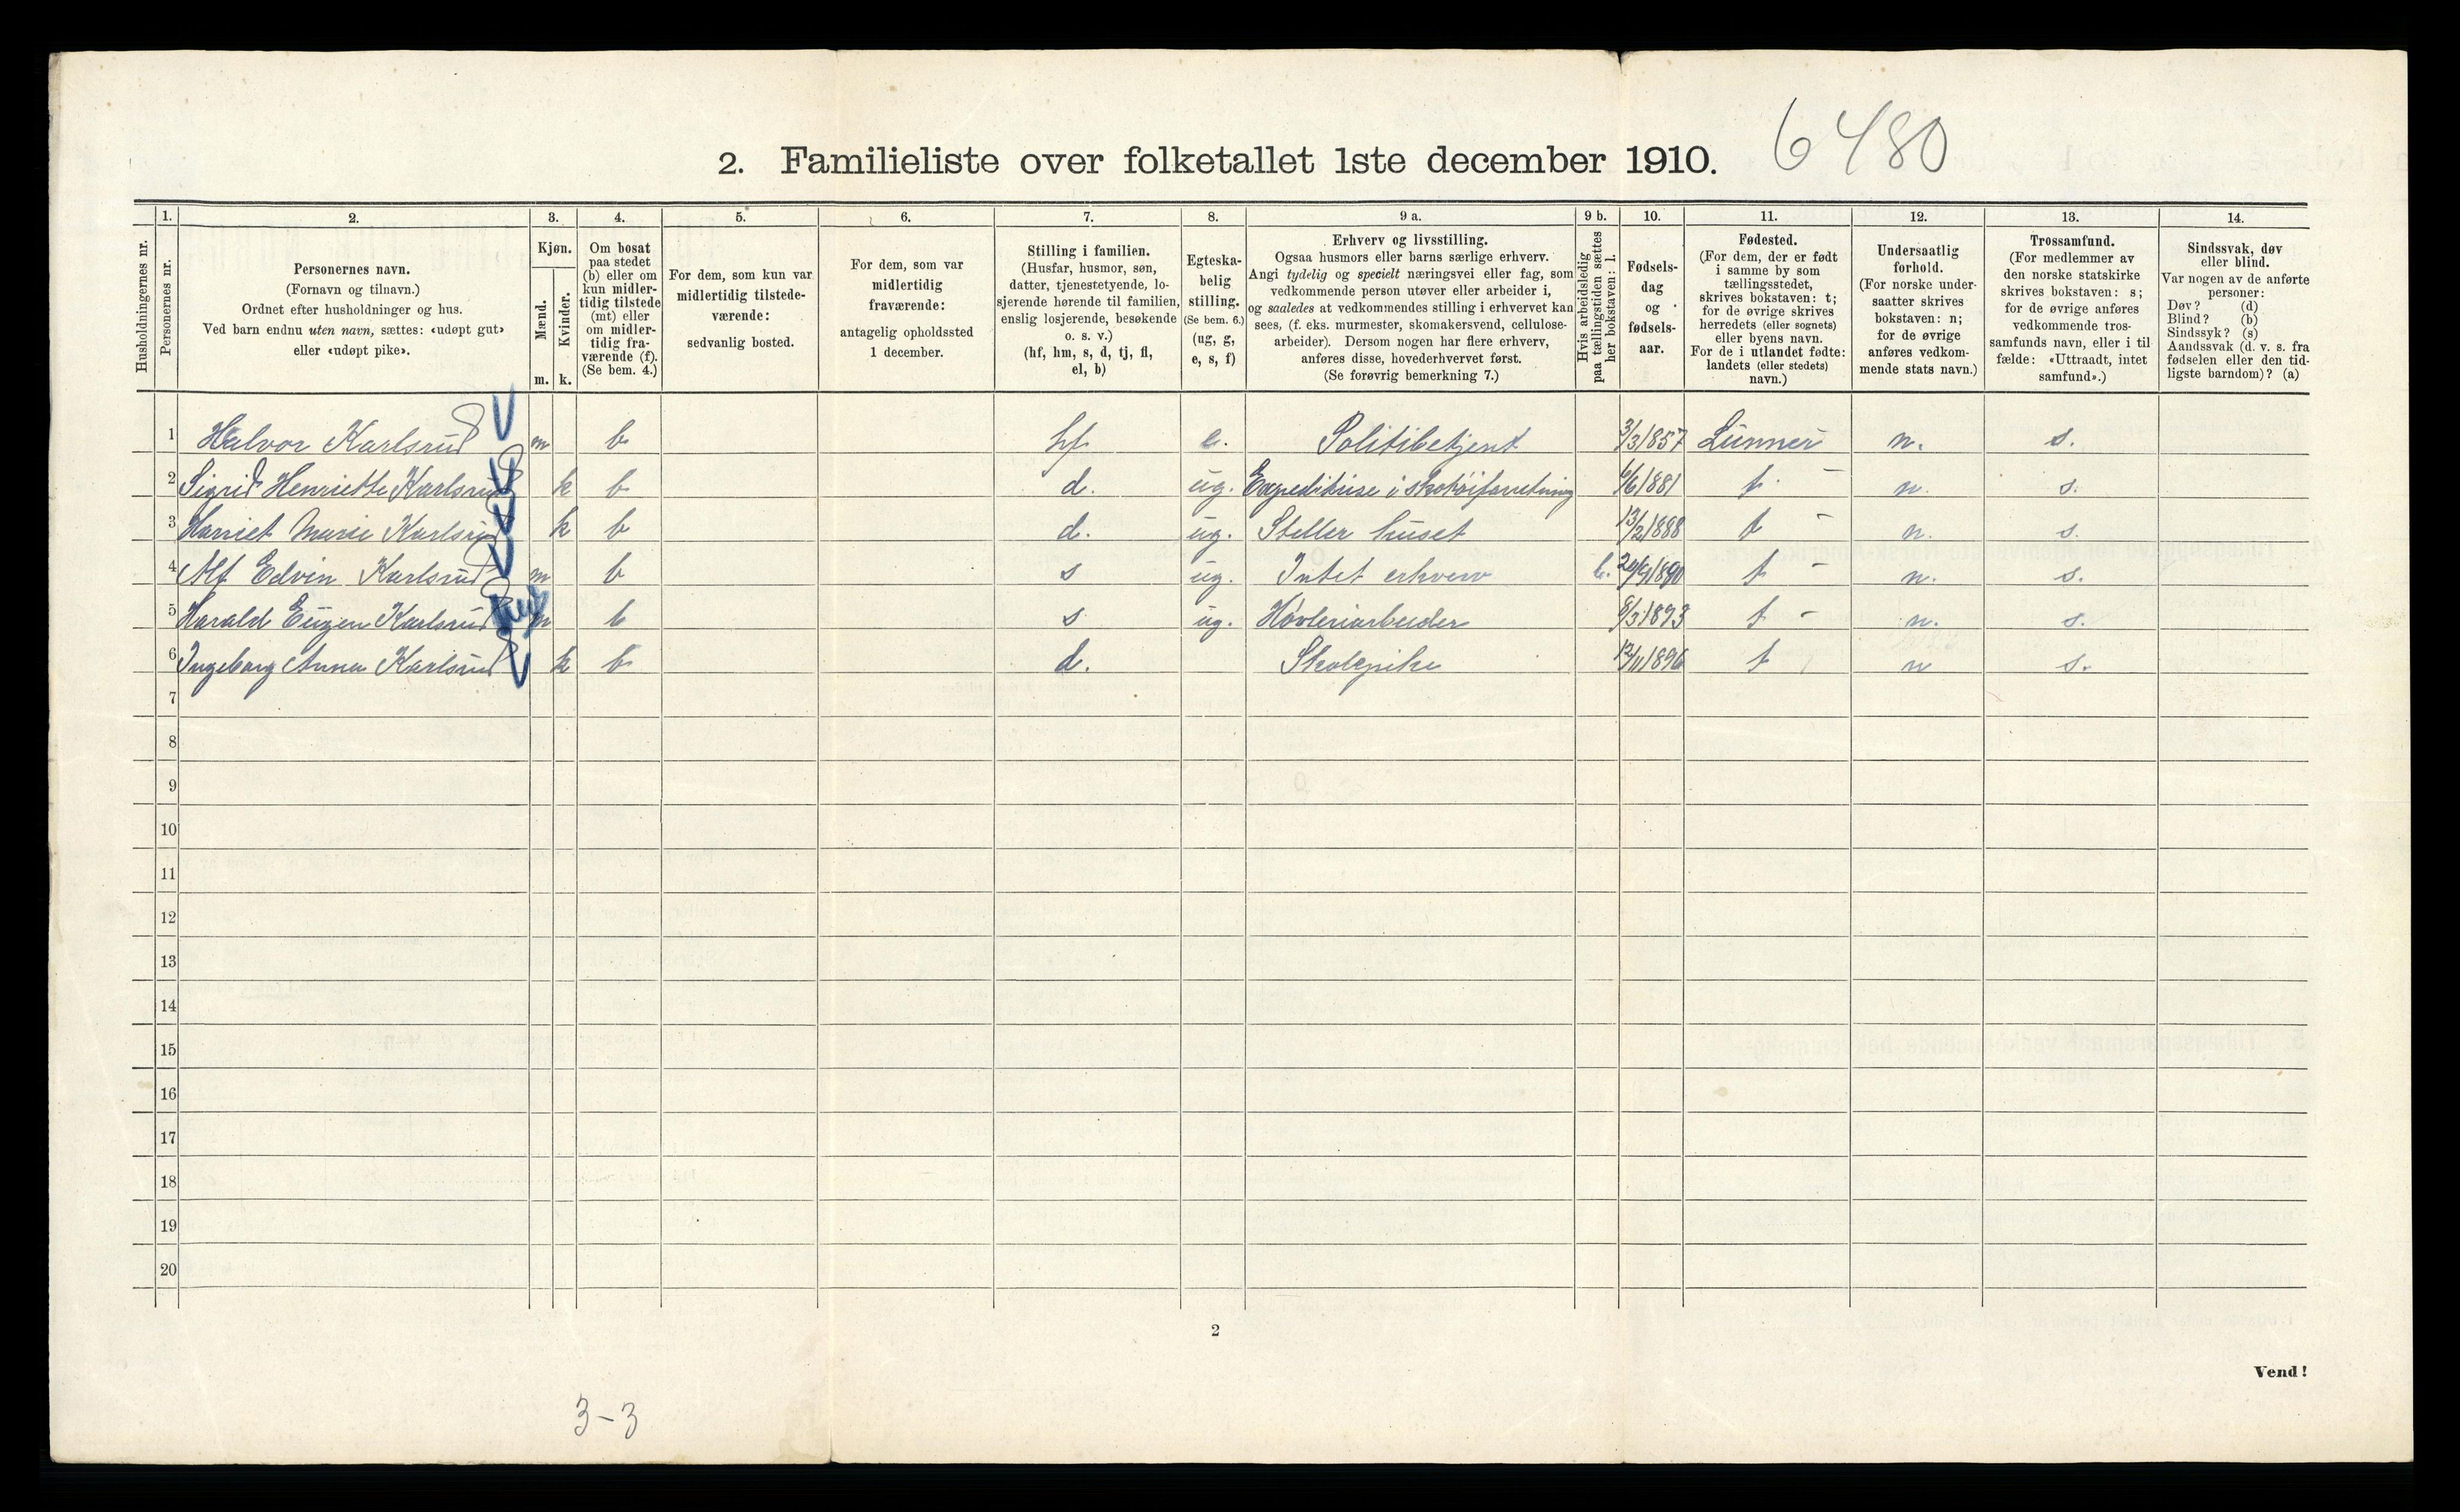 2. Familieliste over folketallet 1ste december 1910. 6480
Husholdningernes nr.
1. Personernes nr.
2. Personernes navn.
(Fornavn og tilnavn.)
Ordnet efter husholdninger og hus.
Ved barn endnu uten navn, sættes: «udøpt gut»
eller «udøpt pike».
3. Kjøn.
Mænd. m.
Kvinder. k.
4. Om bosat
paa stedet
(b) eller om
kun midler-
tidig tilstede
(mt) eller
om midler-
tidig fra-
værende (f).
(Se bem. 4.)
5. For dem, som kun var
midlertidig tilstede-
værende:
sedvanlig bosted.
6. For dem, som var
midlertidig
fraværende:
antagelig opholdssted
1 december.
7. Stilling i familien.
(Husfar, husmor, søn,
datter, tjenestetyende, lo-
sjerende hørende til familien,
enslig losjerende, besøkende
o. s. v.)
(hf, hm, s, d, tj, fl,
el, b)
8. Egteska-
belig
stilling.
(Se bem. 6.)
(ug, g,
e, s, f)
9 a. Erhverv og livsstilling.
Ogsaa husmors eller barns særlige erhverv.
Angi tydelig og specielt næringsvei eller fag, som
vedkommende person utøver eller arbeider i,
og saaledes at vedkommendes stilling i erhvervet kan
sees, (f. eks. murmester, skomakersvend, cellulose-
arbeider). Dersom nogen har flere erhverv,
anføres disse, hovederhvervet først.
(Se forøvrig bemerkning 7.)
9 b. Hvis arbeidsledig
paa tællingstiden sættes
her bokstaven: l.
10. Fødsels-
dag
og
fødsels-
aar.
11. Fødested.
(For dem, der er født
i samme by som
tællingsstedet,
skrives bokstaven: t;
for de øvrige skrives
herredets (eller sognets)
eller byens navn.
For de i utlandet fødte:
landets (eller stedets)
navn.)
12. Undersaatlig
forhold.
(For norske under-
saatter skrives
bokstaven: n;
for de øvrige
anføres vedkom-
mende stats navn.)
13. Trossamfund.
(For medlemmer av
den norske statskirke
skrives bokstaven: s;
for de øvrige anføres
vedkommende tros-
samfunds navn, eller i til
fælde: «Uttraadt, intet
samfund».)
14. Sindssvak, døv
eller blind.
Var nogen av de anførte
personer:
Døv? (d)
Blind? (b)
Sindssyk? (s)
Aandssvak (d. v. s. fra
fødselen eller den tid-
ligste barndom)? (a)
1 Halvor Karlsrud m b hf e. Politibetjent 3/3 1857 Lunner n. s.
2 Sigrid Henriette Karlsrud k b d. ug. Expeditrise i skotøiforretning 6/6 1881 t. n. s.
3 Harriet Marie Karlsrud k b d. ug. Steller huset 13/2 1888 t n. s.
4 Alf Edvin Karlsrud m b s ug. Intet erhverv l. 1890 t n. s.
5 Harald Eugen Karlsrud m b s ug. Høvleriarbeider 8/3 1893 t n. s.
6 Ingeborg Anna Karlsrud k b d. Skolepike 12/11 1896 t n s.
7
8
9
10
11
12
13
14
15
16
17
18
19
20
2
Vend!
3-3